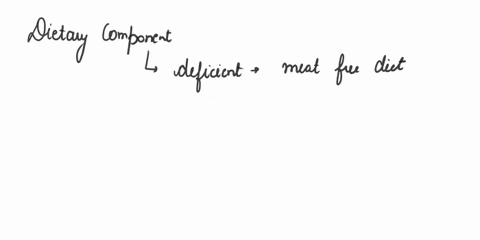 Dietary Component
↳ deficient → meat free diet